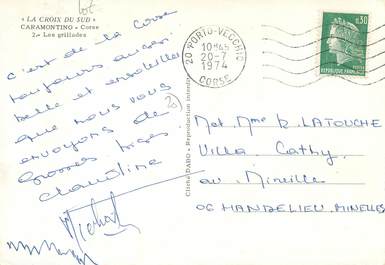 « LA CROIX DU SUD »
CARAMONTINO - Corse
2.- Les grillades
C'est de la Corse
toujours aussi
belle et ensoleillée
que nous vous
envoyons de
Grosses bises
Christine
Michel
Cliché DABO - Reproduction interdite
20 PORTO-VECCHIO
10H45
20-7
1974
CORSE
0,30
REPUBLIQUE FRANÇAISE
Met Mme R. LATOUCHE
Villa Cathy
av Mireille
06 MANDELIEU. MINELLES